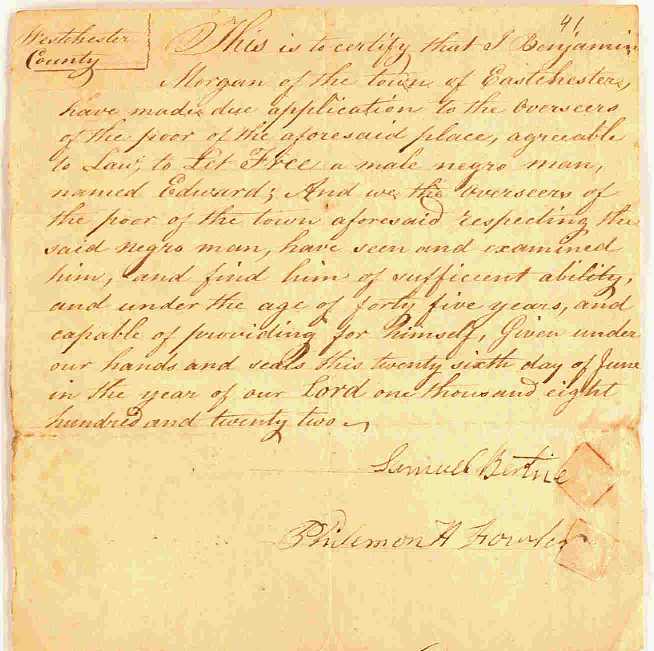 41
Westchester
County
This is to certify that I Benjamin
Morgan of the town of Eastchester,
have made due application to the Overseers
of the poor of the aforesaid place, agreeable
to Law, to Set Free a male negro man,
named Edward; And we the Overseers of
the poor of the town aforesaid respecting the
said negro man, have seen and examined
him, and find him of sufficient ability,
and under the age of forty five years, and
capable of providing for himself, Given under
our hands and seals this twenty sixth day of June
in the year of our Lord one thousand eight
hundred and twenty two
Samuel Bertine
Philemon H Fowler